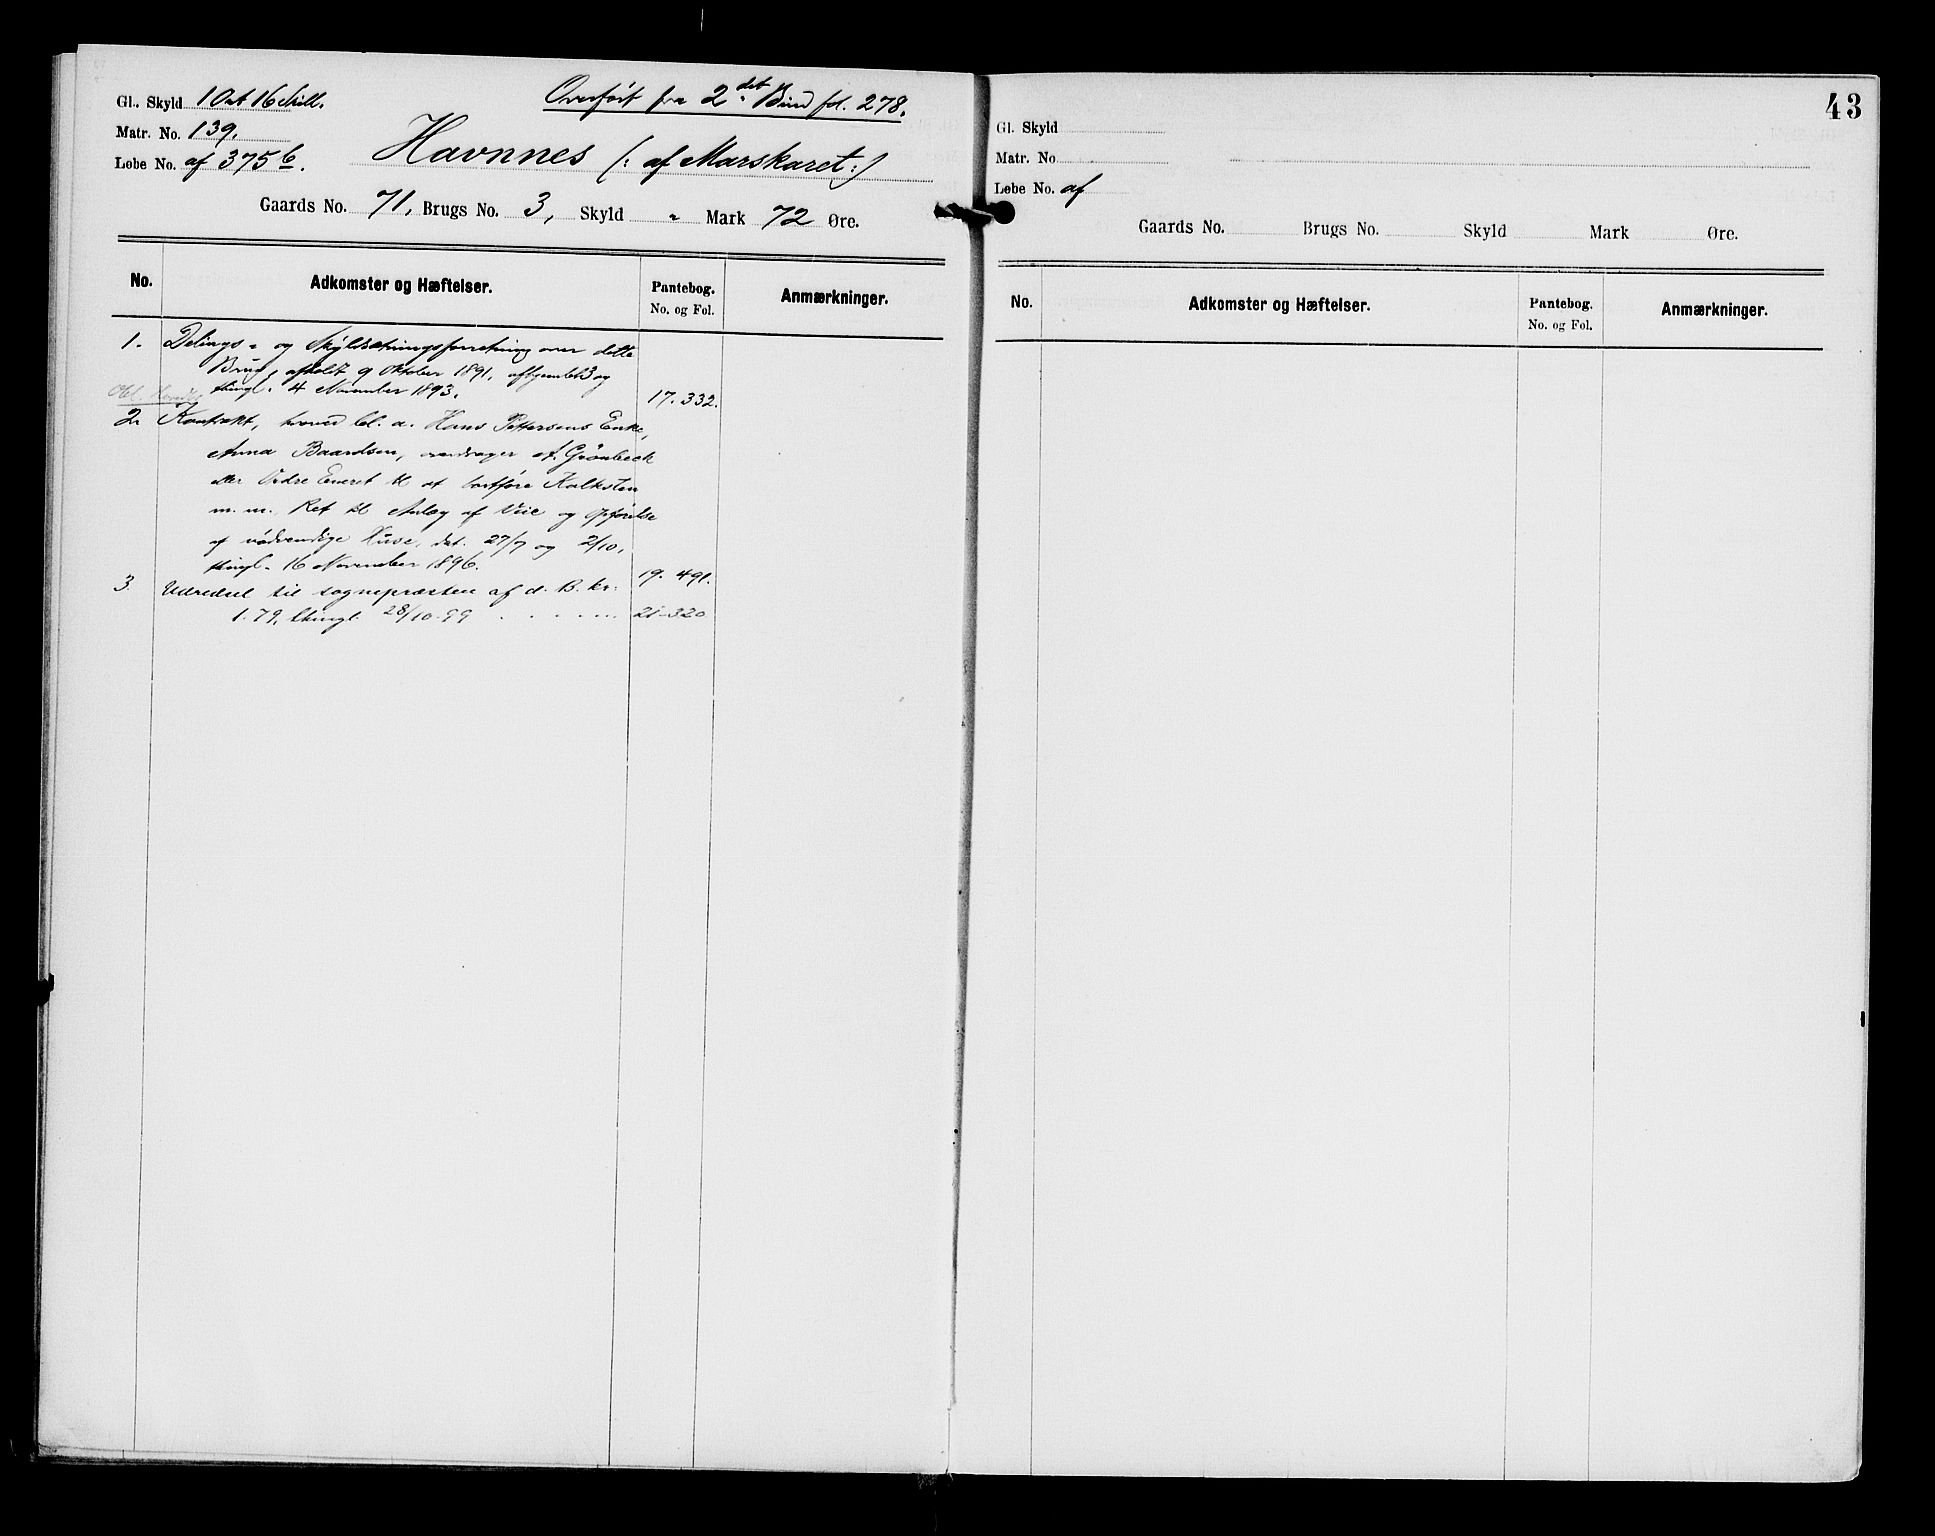 Overført fra 2det Bind fol. 278.
Gl. Skyld 1 Ort 16 Skill.
Matr. No. 139.
Løbe No. af 375 b.
Havnnes (: af Marskaret :)
Gaards No. 71, Brugs No. 3, Skyld " Mark 72 Øre.
No. Adkomster og Hæftelser. Pantebog. No. og Fol. Anmærkninger.
1. Delings- og Skyldsætningsforretning over dette
Brug, afholdt 9 Oktober 1891, afhjemlet 3 og
thingl. 4 November 1893. 17. 332.
2. Kontrakt, hvorved bl. a. Hans Pettersens Enke,
Anna Baardsen, overdrager A. Grönbeck
eller Ordre Eneret til at bortføre Kalksten
m. m. Ret til Anlæg af Veie og Opførelse
af nödvendige Huse, dat. 27/7 og 2/10,
thingl. 16 November 1896. 19. 491.
3. Udredsel til sognepræsten af d. B. kr.
1.79, thingl. 28/10.99 . . . . . . 21-320
43
Gl. Skyld
Matr. No
Løbe No. af
Gaards No. Brugs No. Skyld Mark Øre.
No. Adkomster og Hæftelser. Pantebog. No. og Fol. Anmærkninger.